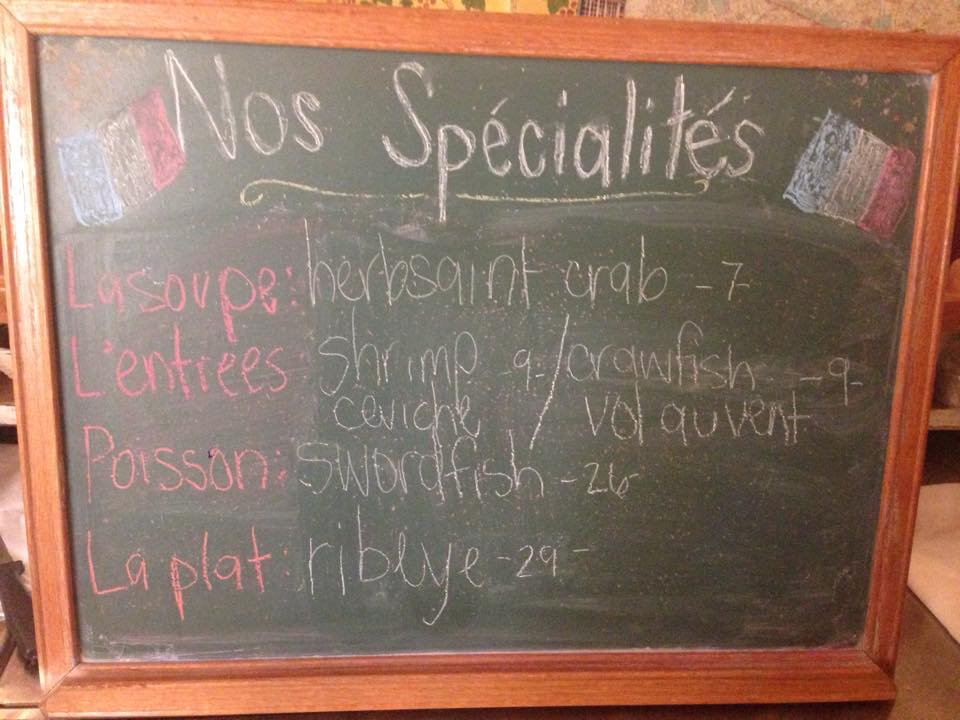 Nos Spécialités
La soupe: herbsaint crab -7-
L'entrées shrimp 9-/crawfish -9-
ceviche / vol au vent
Poisson: swordfish -26
La plat: ribeye -29-